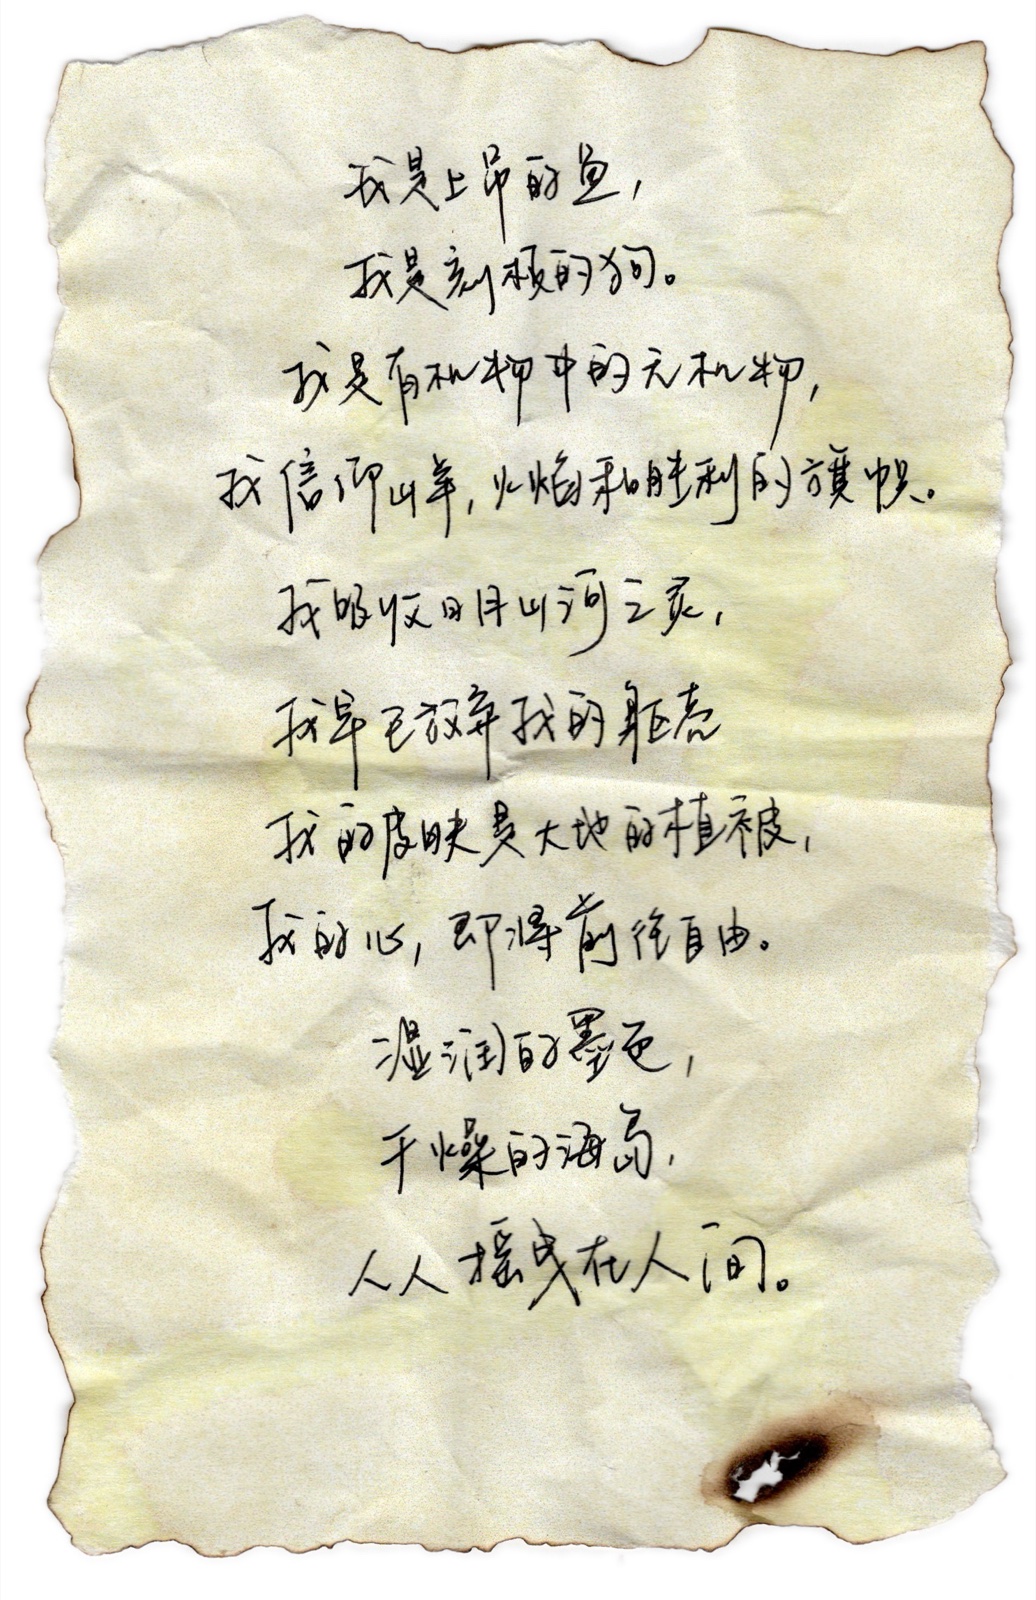 我是上昂的鱼，
我是刻板的狗。
我是有机物中的无机物，
我信仰山羊，火焰和胜利的旗帜。
我吸收日月山河之灵，
我早已放弃我的躯壳
我的皮肤是大地的植被，
我的心，即将前往自由。
湿润的墨色，
干燥的海岛，
人人摇曳在人间。